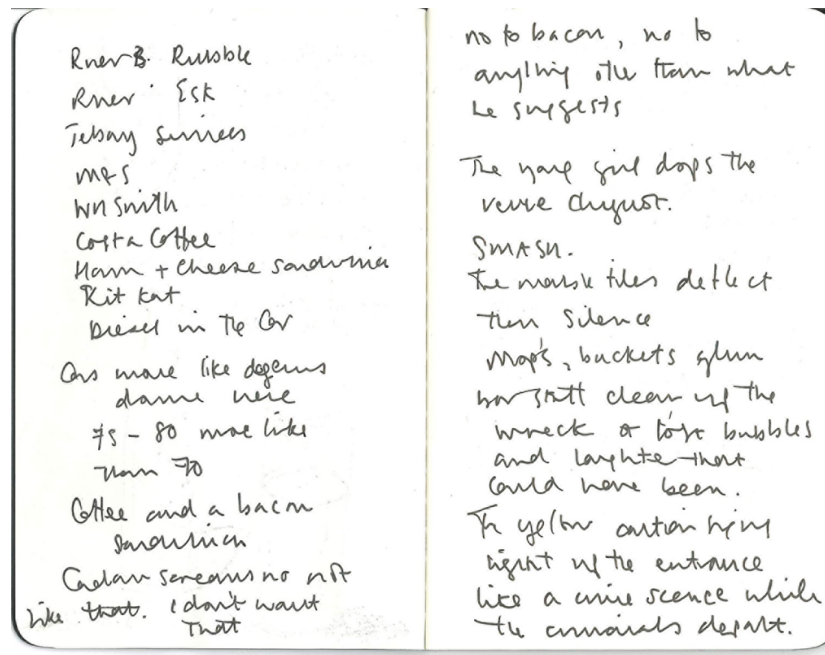 River Rubble
River Esk
Tebay Services
M&S
WH Smith
Costa Coffee
Ham + Cheese Sandwich
Kit Kat
Diesel in The Car
Cars move like
down here
75 - 80 more like
than 70
Coffee and a bacon
Sandwich
screams no not
like that. I don't want
that
no to bacon, no to
anything other than what
he suggests
The young girl drops the
veuve cliquot.
SMASH.
the marble tiles deflect
then Silence
Mops, buckets glum
bar staff clean up the
wreck of lost bubbles
and laughter that
could have been.
The yellow caution
light up the entrance
like a crime scence while
the criminals depart.